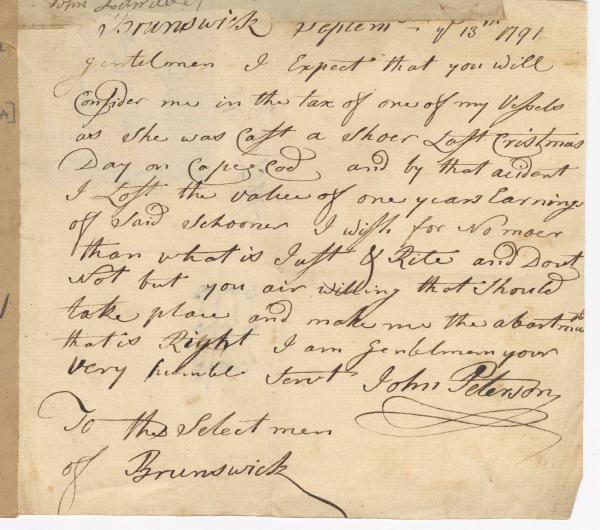 John
Brunswick Septem ye 13th 1791
Gentelmen I Expect that you will
Consider me in the tax of one of my Vessels
as She was Cast a Shoer Last Cristmas
Day on Cape Cod and by that acident
I Lost the value of one years Earning
of Said Schooner I wish for No moer
than what is Just & Rite and Dout
Not but you air willing that Should
take place and make me the abartment
that is Right I am Gentelmen your
Very humble Servt John Peterson
To the Select men
of Brunswick
A]